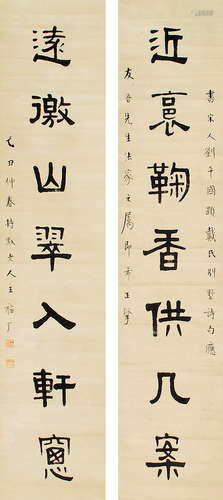 近裛鞠香供几案
書宋人劉千國題戴氏別墅詩句應
友吾先生法家之屬即希正擘
遠徼山翠入軒窻
己丑仲春持默老人王福厂